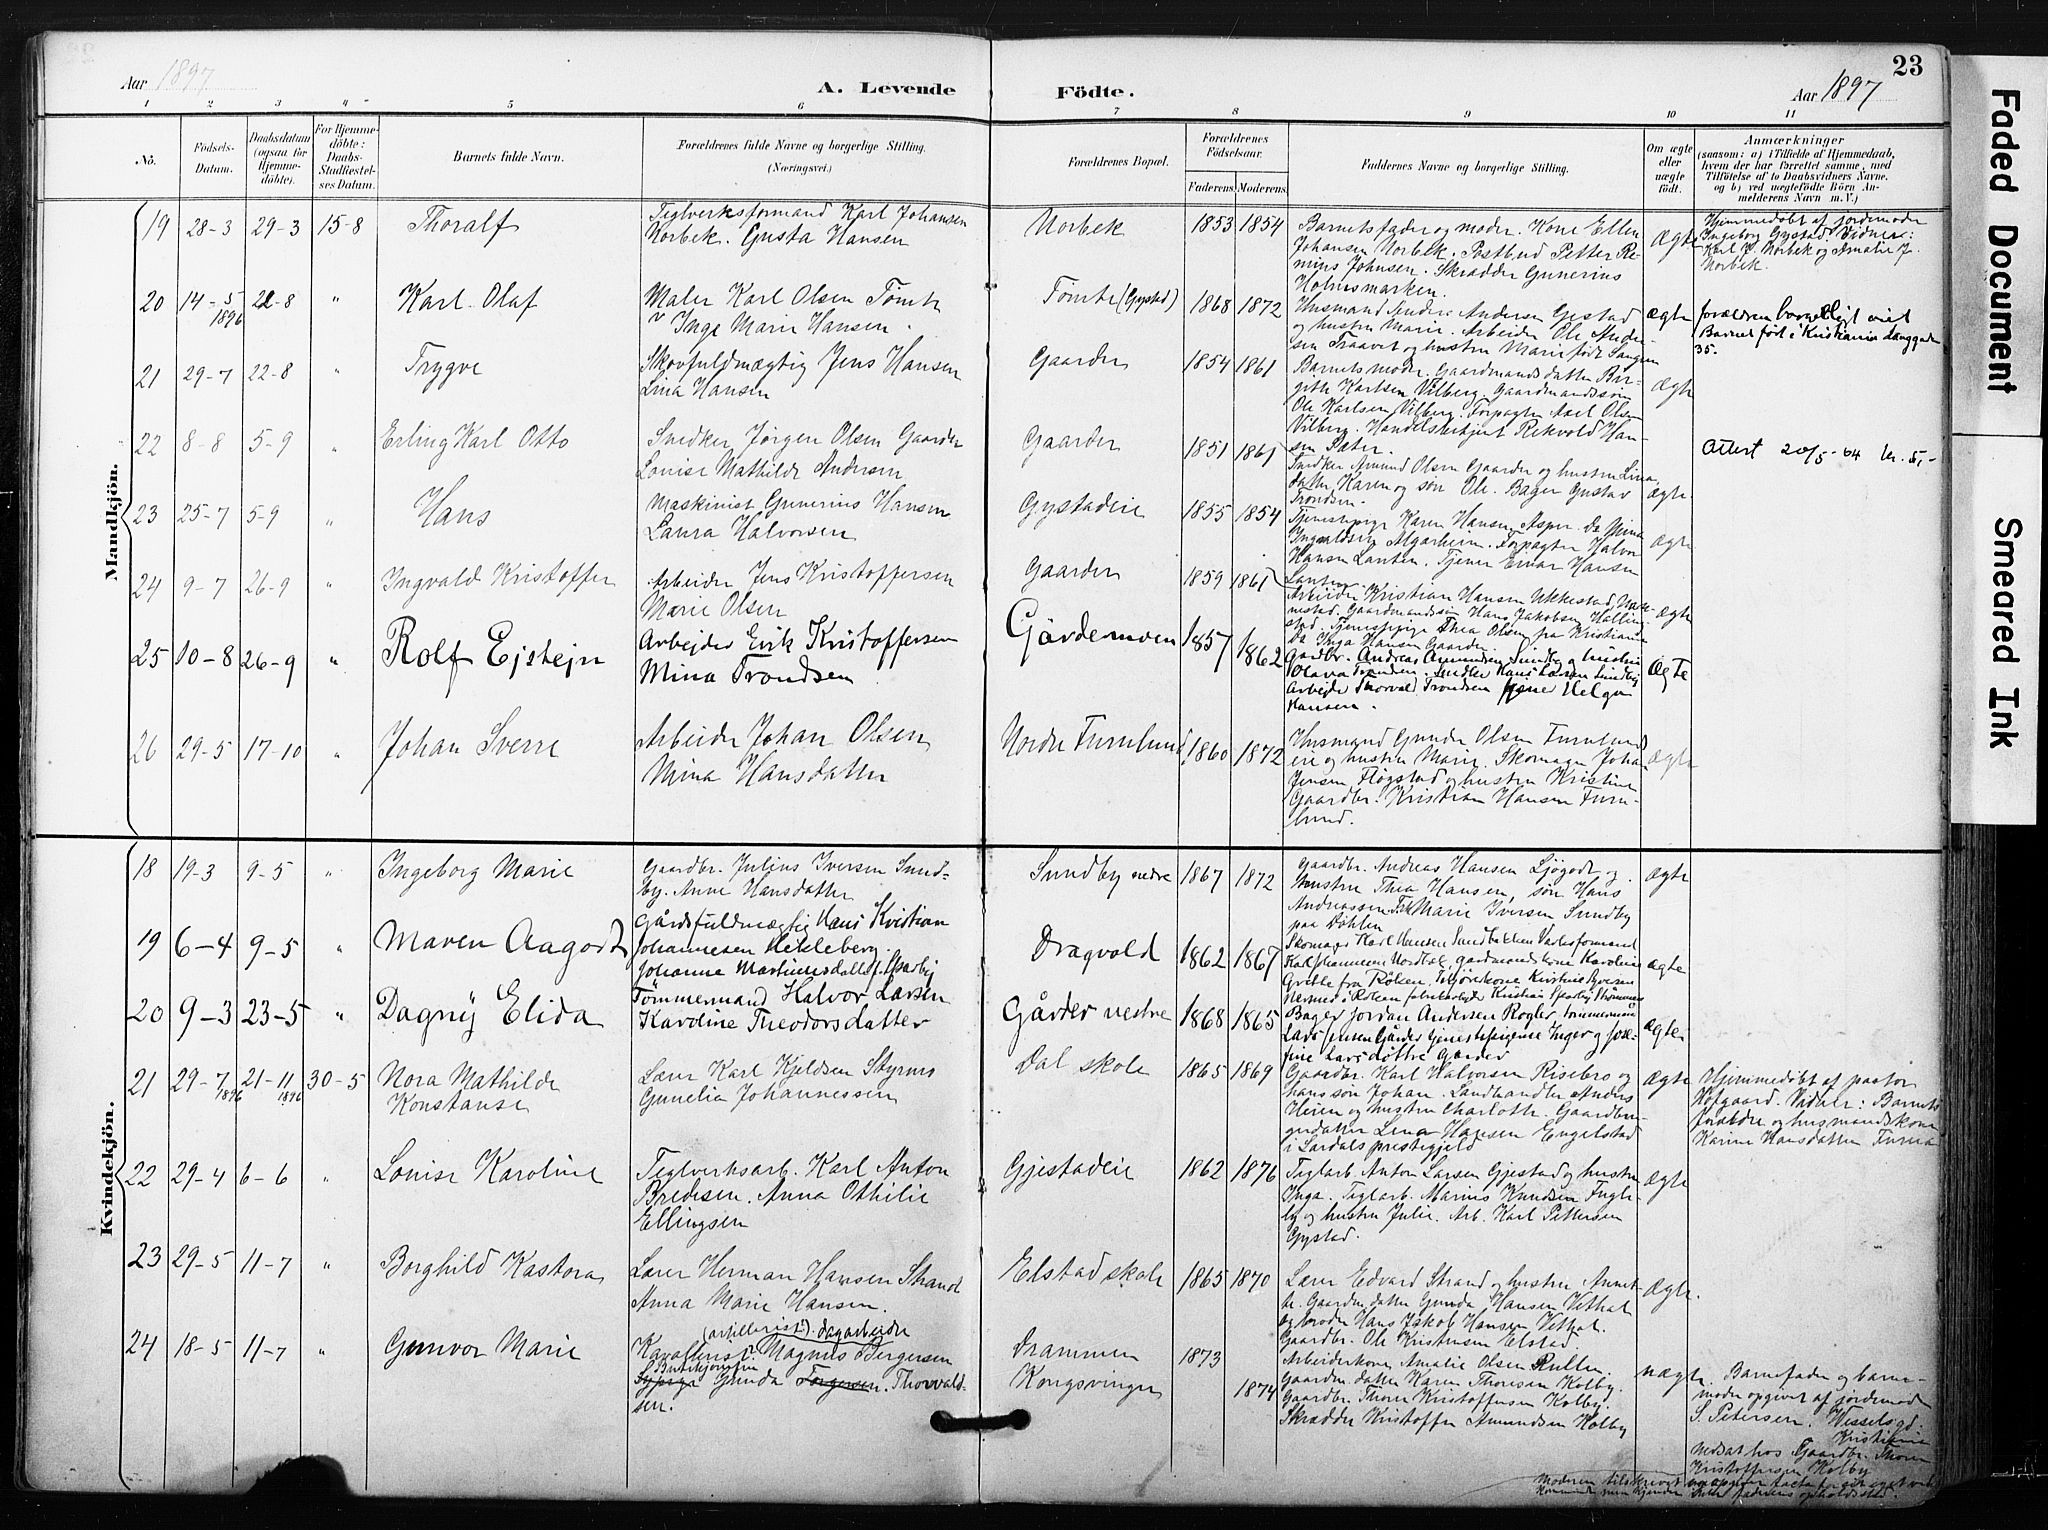 23
Aar 1897
A. Levende
Födte.
Aar 1897
1 2 3 4 5 6 7 8 9 10 11
No.
Födsels-Datum.
Daabsdatum (ogsaa for Hjemmedöbte).
For Hjemmedöbte: Daabs-Stadfæstelses Datum.
Barnets fulde Navn.
Forældrenes fulde Navne og borgerlige Stilling. (Næringsvei.)
Forældrenes Bopæl.
Forældrenes Födselsaar.
Faderens. Moderens.
Faddernes Navne og borgerlige Stilling.
Om ægte eller uægte födt.
Anmærkninger
(saasom: a) i Tilfælde af Hjemmedaab, hvem der har forrettet samme, med Tilföielse af to Daabsvidners Navne, og b) ved uægtefödte Börn Anmelderens Navn m. V.)
Mandkjön.
19 28-3 29-3 15-8 Thoralf
Teglverksformand Karl Johansen
Norbek. Gusta Hansen
Norbek 1853 1854
Barnets fader og moder. Kone Ellen
Johansen Norbek. Postbud Petter Re-
nius Johnsen. Skrædder Gunerius
Holmsmarken.
Ægte
Hjemmedøbt af jordemoder
Ingeborg Gystad. Vidner:
Karl J. Norbek og Amalie J.
Norbek.
20 14-5 1896 22-8 " Karl Olaf
Maler Karl Olsen Tømte
Inga Marie Hansen.
Tømte (Gystad) 1868 1872
Husmand Anders Andersen Gjestad
og hustru Marie. Arbeider Ole Ander-
sen Traavet og hustru Marie født
ægte
forældrene borgerligt viet
Barnet født i Kristiania
35.
21 29-7 22-8 " Trygve
Skovfuldmægtig Jens Hansen
Lina Hansen
Gaarder 1854 1861
Barnets moder. Gaardmandsdatter Bir-
gitte Karlsen Vilberg. Gaardmandssøn
Ole Karlsen Vilberg. Forpagter Axel Olsen
Vilberg. Handelsbetjent Rekvold Han-
sen Sæter.
Ægte
22 8-8 5-9 " Erling Karl Otto
Snedker Jørgen Olsen Gaarder
Louise Mathilde Andersen
Gaarder 1851 1861
Snedker Amund Olsen Gaarder og hustru Lina,
datter Karen og søn Ole. Bager Gustav
Trondsen.
Ægte
Attest 20/5-64 kr. 5,-
23 25-7 5-9 " Hans
Maskinist Gunerius Hansen
Laura Halvorsen
Gystadeie 1855 1854
Tjenestepige Karen Hansen Asper. Do Mina
Ingvaldsen Algarheim. Forpagter Halvor
Hansen Lauten. Tjener Einar Hansen
Lauten.
Ægte
24 9-7 26-9 " Ingvald Kristoffer
Arbeider Jens Kristoffersen
Marie Olsen
Gaarder 1859 1861
Arbeider Kristian Hansen Ukkestad, Nan-
nestad. Gaardmandssøn Hans Jakobsen Hallin-
stad. Tjenestepige Thea Olsen fra Kristiania
Do Inga Hansen Gaarder.
Ægte
25 10-8 26-9 " Rolf Ejstejn
Arbejder Erik Kristoffersen
Mina Trondsen
Gårdermoen 1857 1862
Gårdbr. Andreas Amundsen Sundby og hustru
Olava Trondsen. Snedker Hans Larsen Sundby
Arbejder Thorvald Trondsen pige Helga
Hansen.
Ægte
26 29-5 17-10 " Johan Sverre
Arbeider Johan Olsen
Mina Hansdatter
Nordre Furulund 1860 1872
Husmand Gunder Olsen Furulunds
eie og hustru Marie. Skomager Johan
Jensen Fløgstad og hustru Kristine
Gaardbr. Kristian Hansen Furu-
lund.
Ægte
Kvindekjön.
18 19-3 9-5 " Ingeborg Marie
Gaardbr. Julius Iversen Sund-
by. Anne Hansdatter
Sundby nedre 1867 1872
Gaardbr. Andreas Hansen Ljøgodt og
hustru Thea Hansen, søn Hans
Andreassen. Frk Marie Iversen Sundby
paa Døhlen
Ægte
19 6-4 9-5 " Maren Aagodt
Gårdsfuldmægtig Hans Kristian
Johannesen Hekleberg.
Johanne Martinusdatter Sparby
Dragvold 1862 1867
Skomager Karl Hansen Sundbakken Værksformand
Karl Johannesen Nordtal, gardmandskone Karoline
Grette fra Røken,
ægte
20 9-3 23-5 " Dagny Elida
Tömmermand Halvor Larsen
Karoline Theodorsdatter
Gårder vestre 1868 1865
Bager Jordan Andersen Rogler, tømmermann
Lars Jensen Gårder tjenestepigerne Inger og Jose-
fine Larsdøttre Gårder
ægte
21 29-7 1896 21-11 1896 30-5 Nora Mathilde
Konstanse
Lærer Karl Kjeldsen Styrmo
Gunelia Johannessen
Dal skole 1865 1869
Gaardbr. Karl Halvorsen Risebro og
hans søn Johan. Landhandler Anders
Heien og hustru Charlotte. Gaardbru-
gerdatter Lina Hansen Engelstad
i Lardals prestegjeld
Ægte
Hjemmedøbt af pastor
Hofgaard. Vidner: Barnets
forældre og husmandskone
Karine Hansdatter Furua
22 29-4 6-6 " Louise Karoline
Teglverksarb. Karl Anton
Bredesen. Anna Othilie
Ellingsen
Gjestadeie 1862 1876
Teglarb. Anton Larsen Gjestad og hustru
Inga. Teglarb. Marius Knudsen Fugle-
by og hustru Julie. Arb. Karl Pettersen
Gystad.
Ægte
23 29-5 11-7 " Borghild Kastora
Lærer Herman Hansen Strand
Anna Marie Hansen.
Elstad skole 1865 1870
Lærer Edvard Strand og hustru Annet-
te. Gaardm. datter Gunda Hansen Vethal
og broder Hans Jakob Hansen Vethal.
Gaardbr. Ole Kristensen Elstad.
Ægte.
24 18-5 11-7 " Gunvor Marie
(artillerist?) dagarbeider
Kavallerist Magnus Bergersen
Sypige Gunda Torgersen. Thorvald-
sen.
Drammen
Kongsvinger
1873
1874
Arbeiderkone Amalie Olsen Rullen
Gaardm. datter Karen Thoresen Kolby.
Gaardbr. Thore Kristoffersen Kolby.
Skrædder Kristoffer Amundsen Kolby
uægte.
Barnefader og barne-
moder opgivet af jordemoder
S. Petersen. Wesselsgd.
Kristiania
Nedsat hos Gaardbr. Thore
Kristoffersen Kolby
Moderen tilskrevet
faderens opholdssted.
Faded Document
Smeared Ink